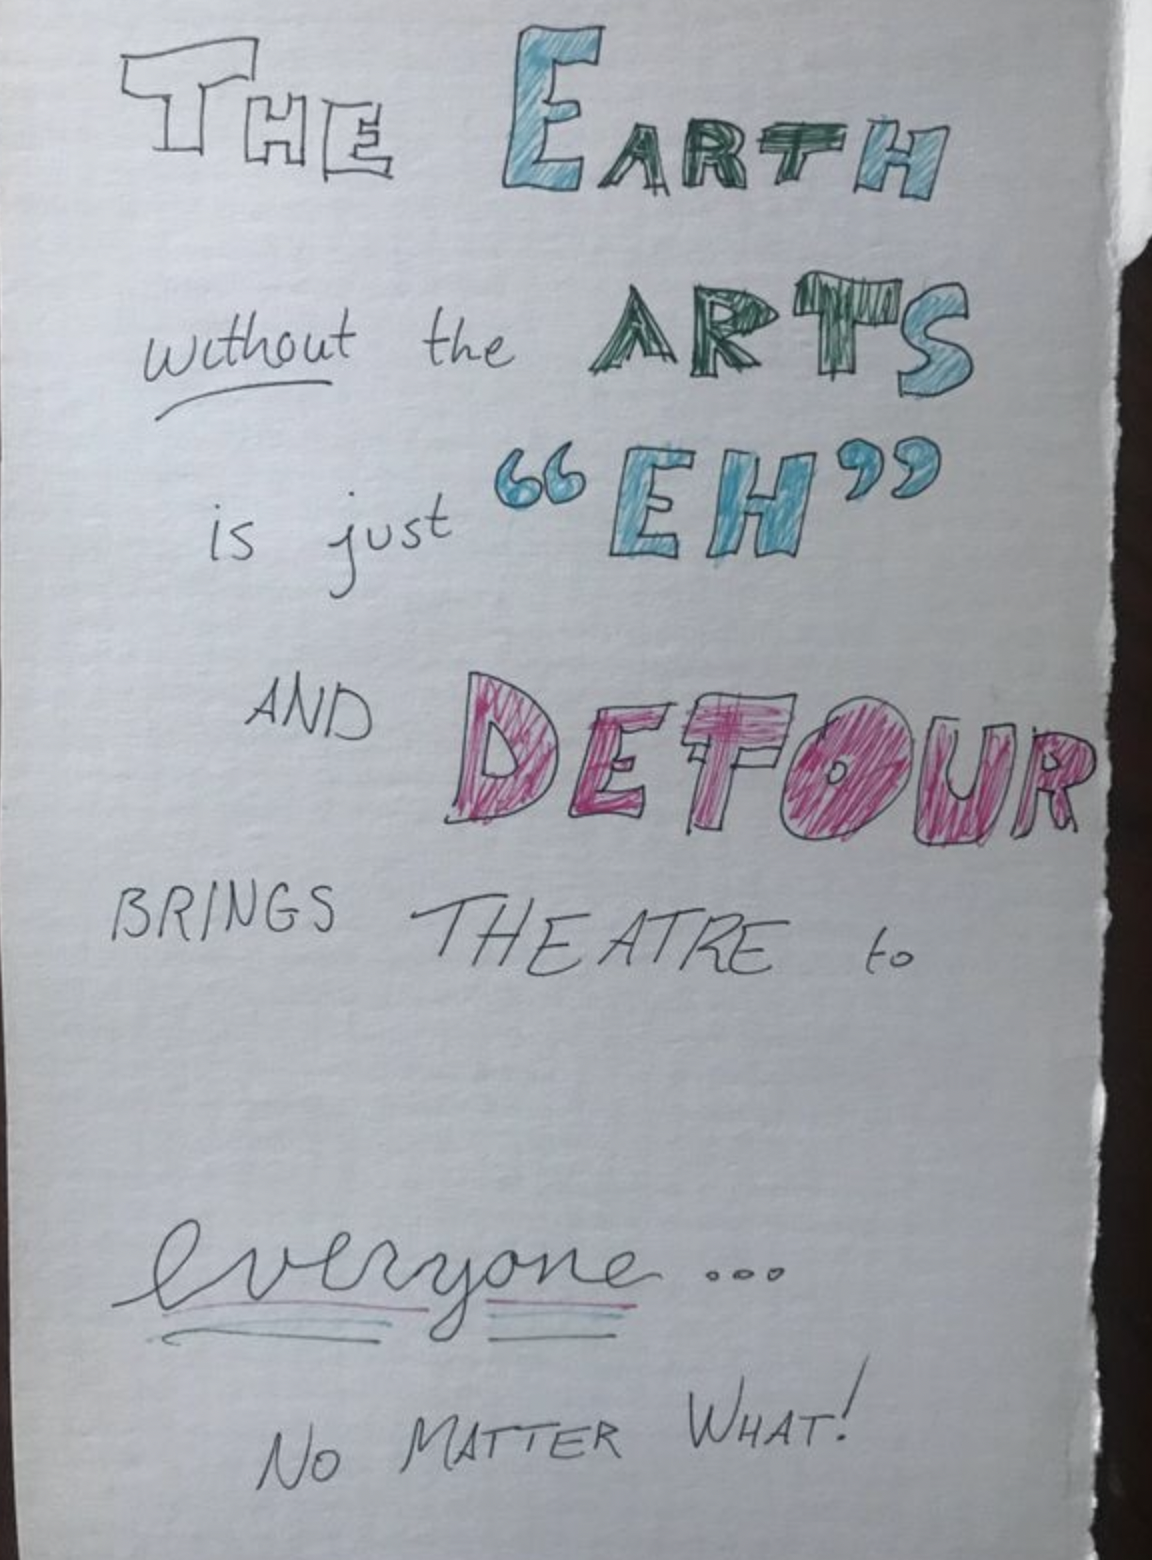 THE EARTH
without the ARTS
is just “EH”
AND DETOUR
BRINGS THEATRE to
everyone ...
NO MATTER WHAT!